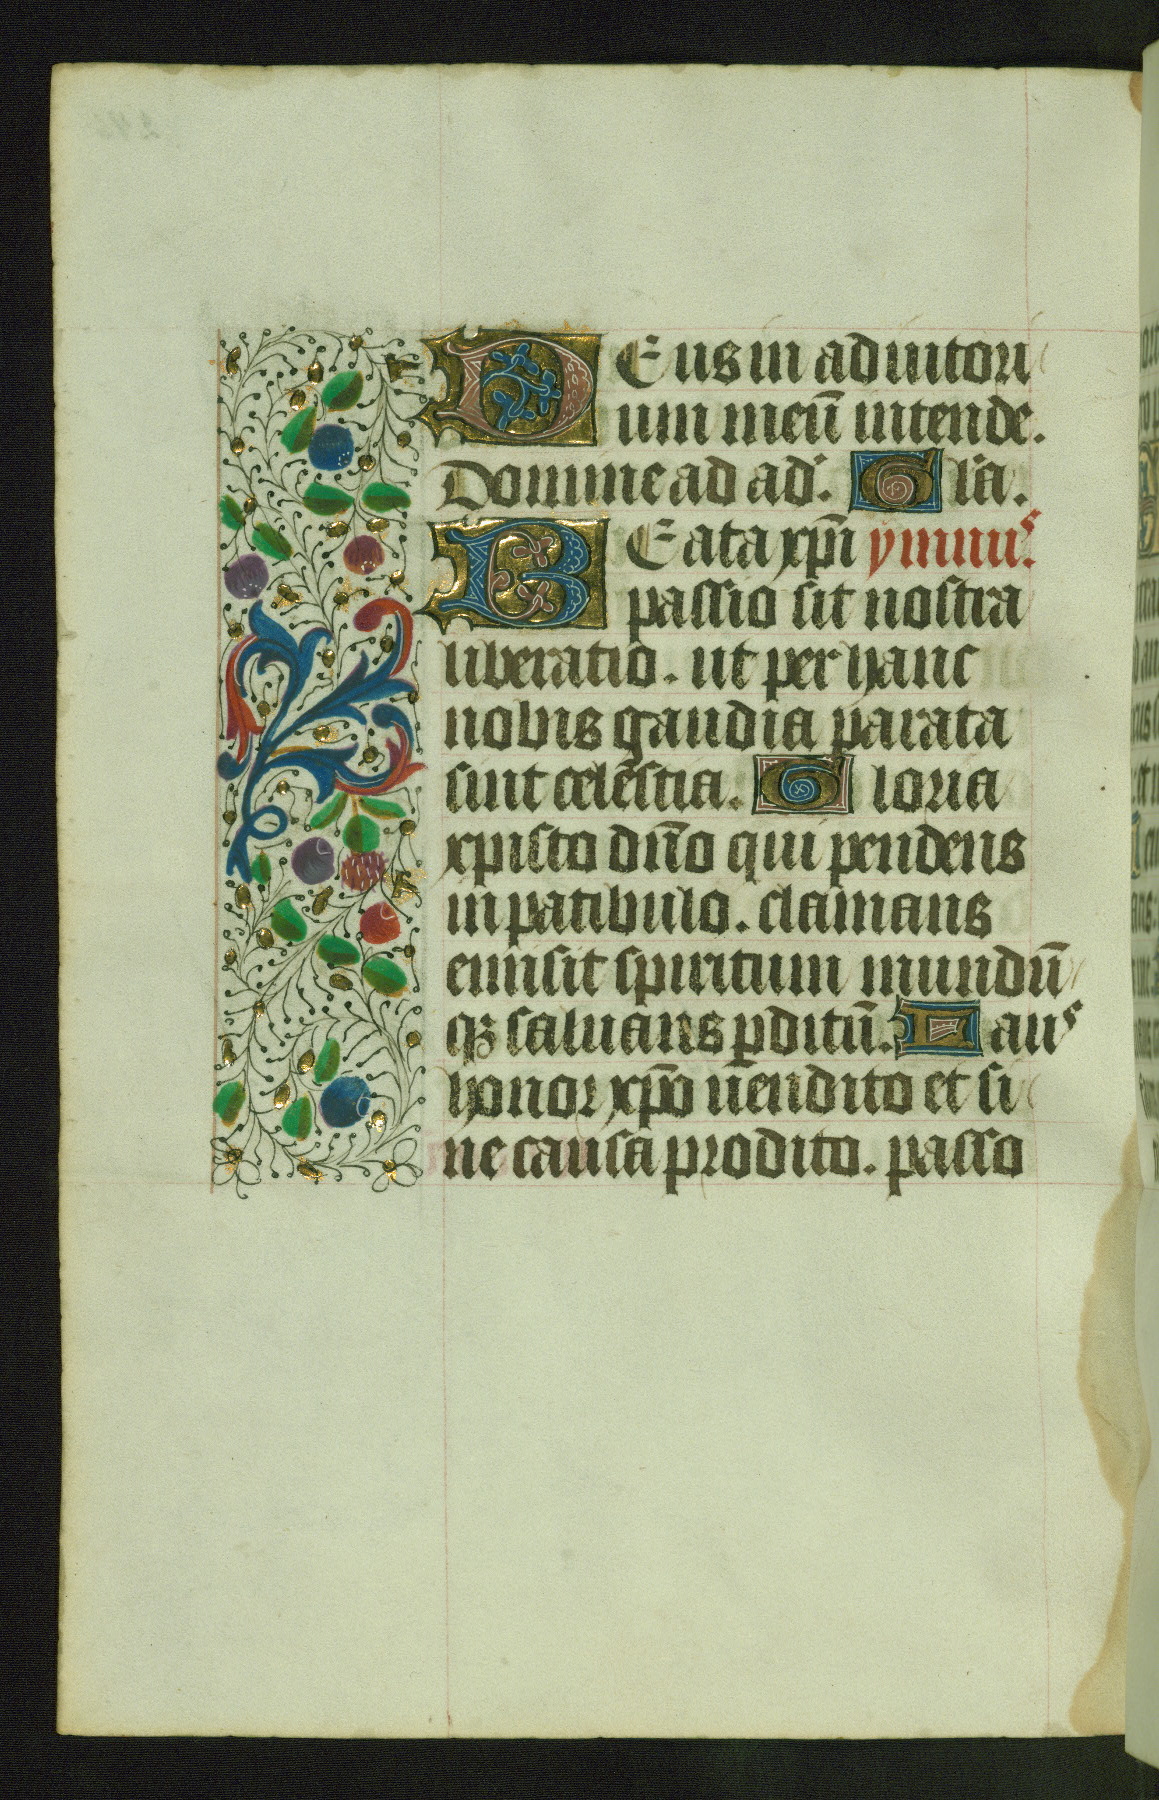 DEus in adiutori
um meū intende.
Domine ad ad'. Gl'a.
BEata xp̄i ymnus.
passio sit nostra
liberatio. ut per hanc
nobis gaudia parata
sint celestia. Gloria
xpisto dn̄o qui pendens
in patibulo. clamans
emisit spiritum mundū
qꝫ saluans ꝑditū. Laus
honor xp̄o uendito et si
ne causa prodito. passo